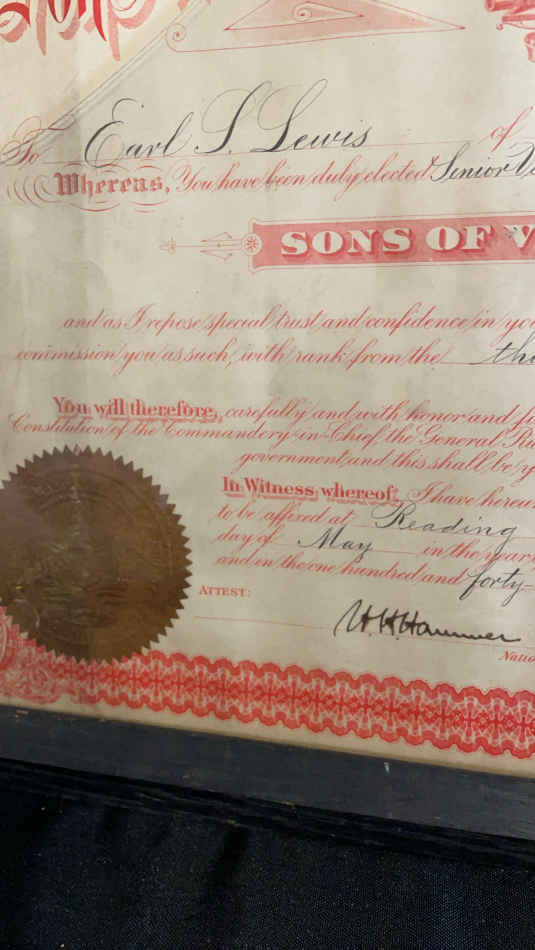 To Earl S. Lewis of
Whereas, You have been duly elected Senior
SONS OF V
and as I repose special trust and confidence in yo
commission you as such, with rank from the
You will therefore, carefully and with honor and
Constitution of the Commandery-in-Chief, the General
government and this shall be
In Witness whereof, I have hereun
to be affixed at Reading
day of May in the year
and in the one hundred and forty
ATTEST:
H. H. Hammer
Natio